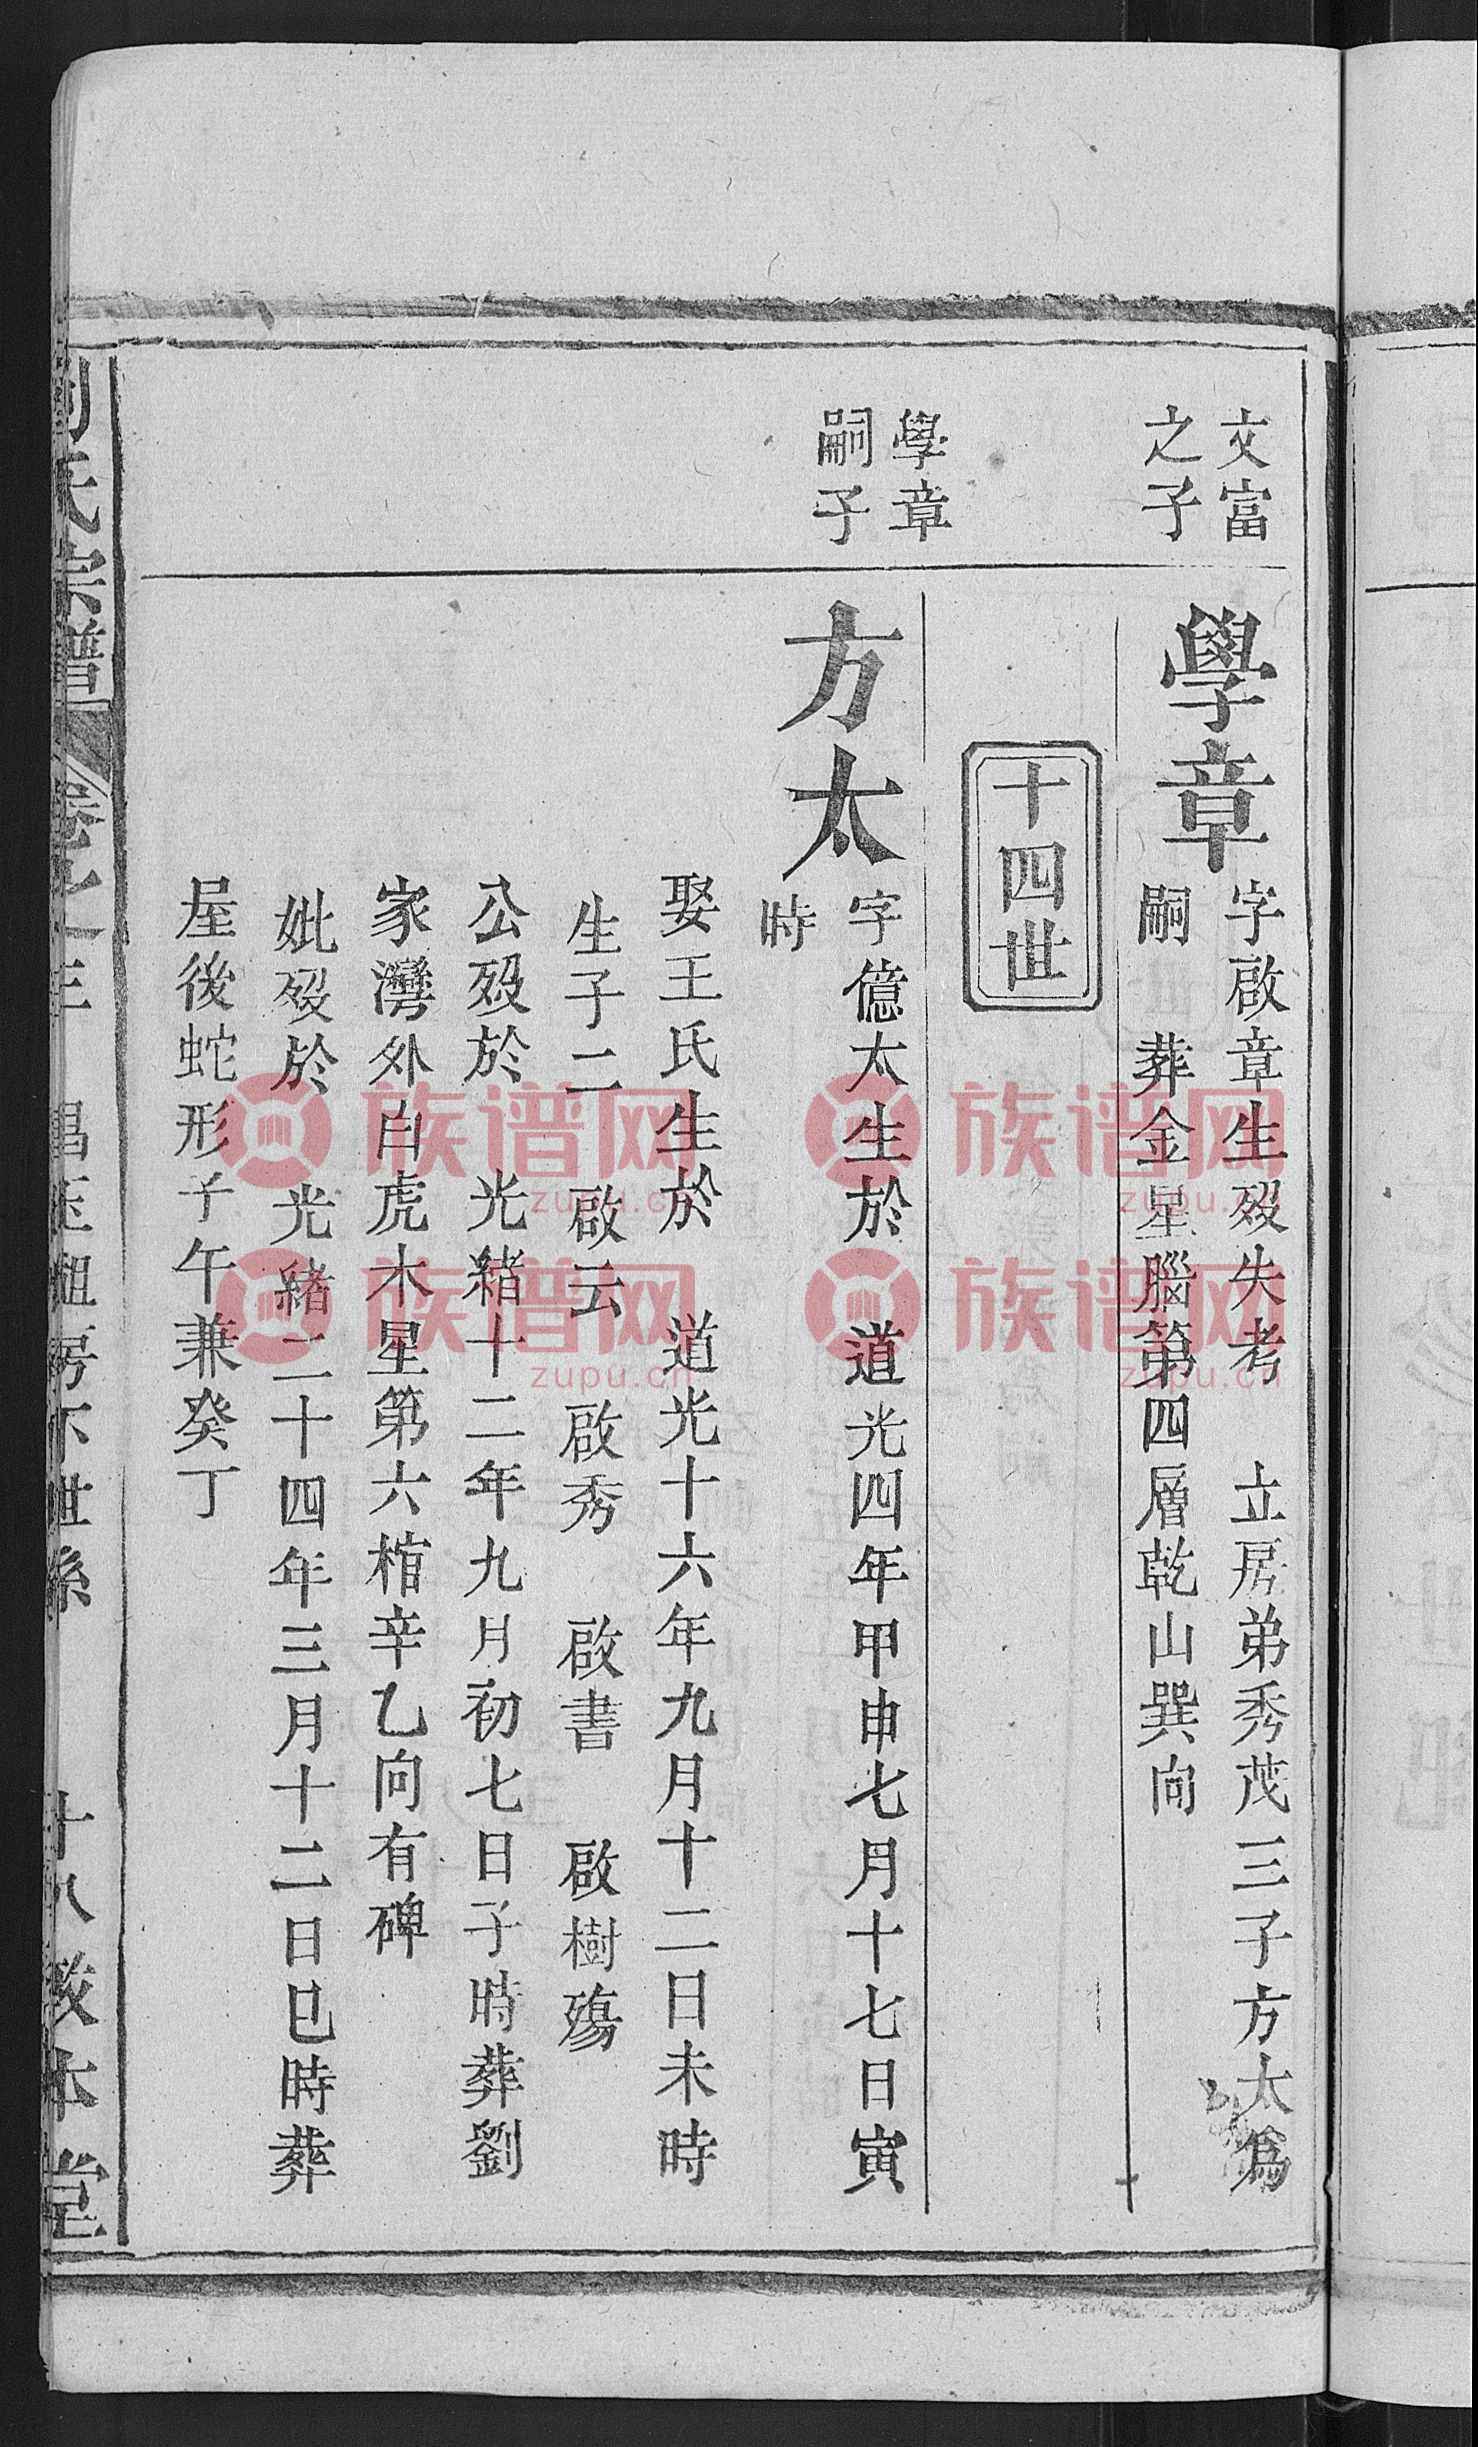 文富
之子
學章
字啟章生歿失考 立房弟秀茂三子方太爲
嗣 葬金星腦第四層乾山巽向
十四世
學章
嗣子
方太
字億太生於 道光四年甲申七月十七日寅
時
娶王氏生於 道光十六年九月十二日未時
生子二 啟云 啟秀 啟書 啟樹殤
公歿於 光緒十二年九月初七日子時葬劉
家灣外白虎木星第六棺辛乙向有碑
妣歿於 光緒二十四年三月十二日巳時葬
屋後蛇形子午兼癸丁
氏宗譜
房下世系
十八
本堂
族谱网
zupu.cn
族谱网
zupu.cn
族谱网
zupu.cn
族谱网
zupu.cn